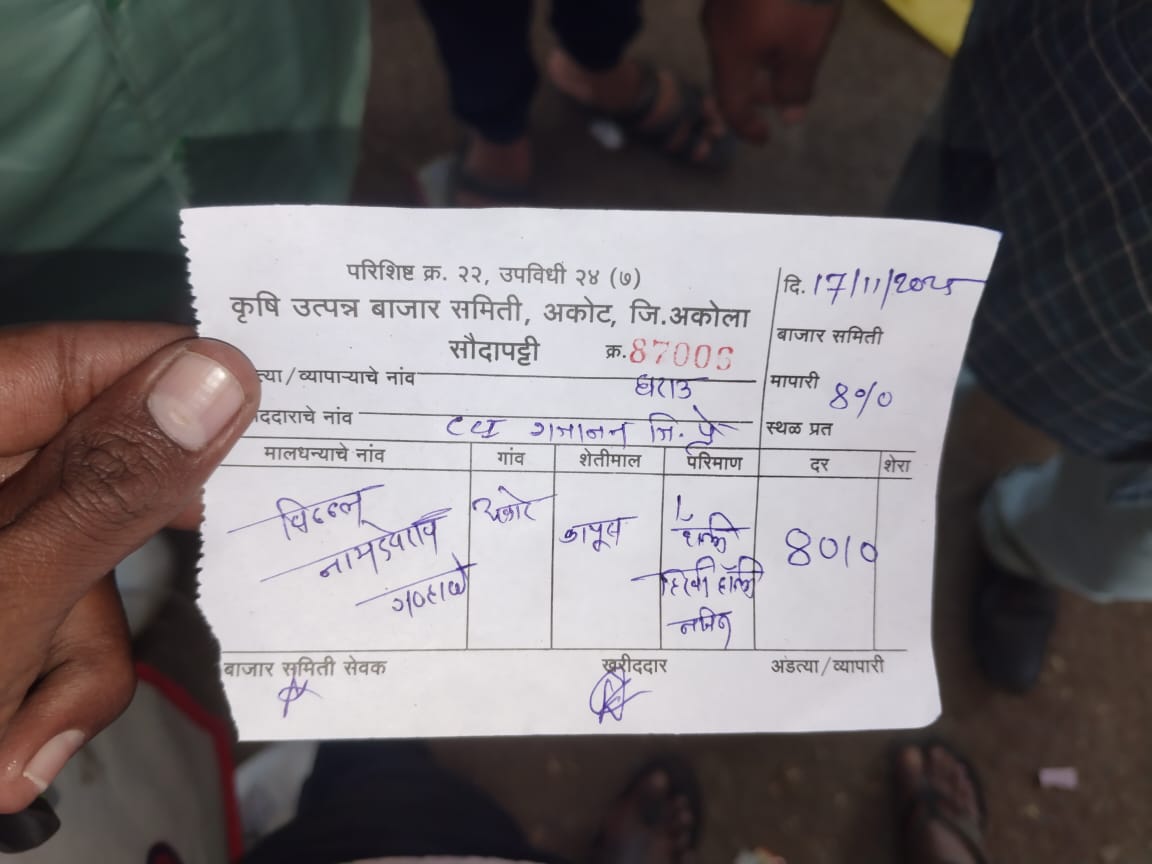 परिशिष्ट क्र. २२, उपविधी २४ (७)
कृषि उत्पन्न बाजार समिती, अकोट, जि.अकोला
सौदापट्टी क्र. 87006
दि. 17/11/2025
बाजार समिती
त्या/व्यापाऱ्याचे नांव घराउ
मापारी 8%
ददाराचे नांव गजानन जि. प्रे
स्थळ प्रत
मालधन्याचे नांव गांव शेतीमाल परिमाण दर शेरा
विठ्ठल अकोट कापूस 1 8010
नामदेवराव
बाजार समिती सेवक खरीददार अंडत्या/व्यापारी